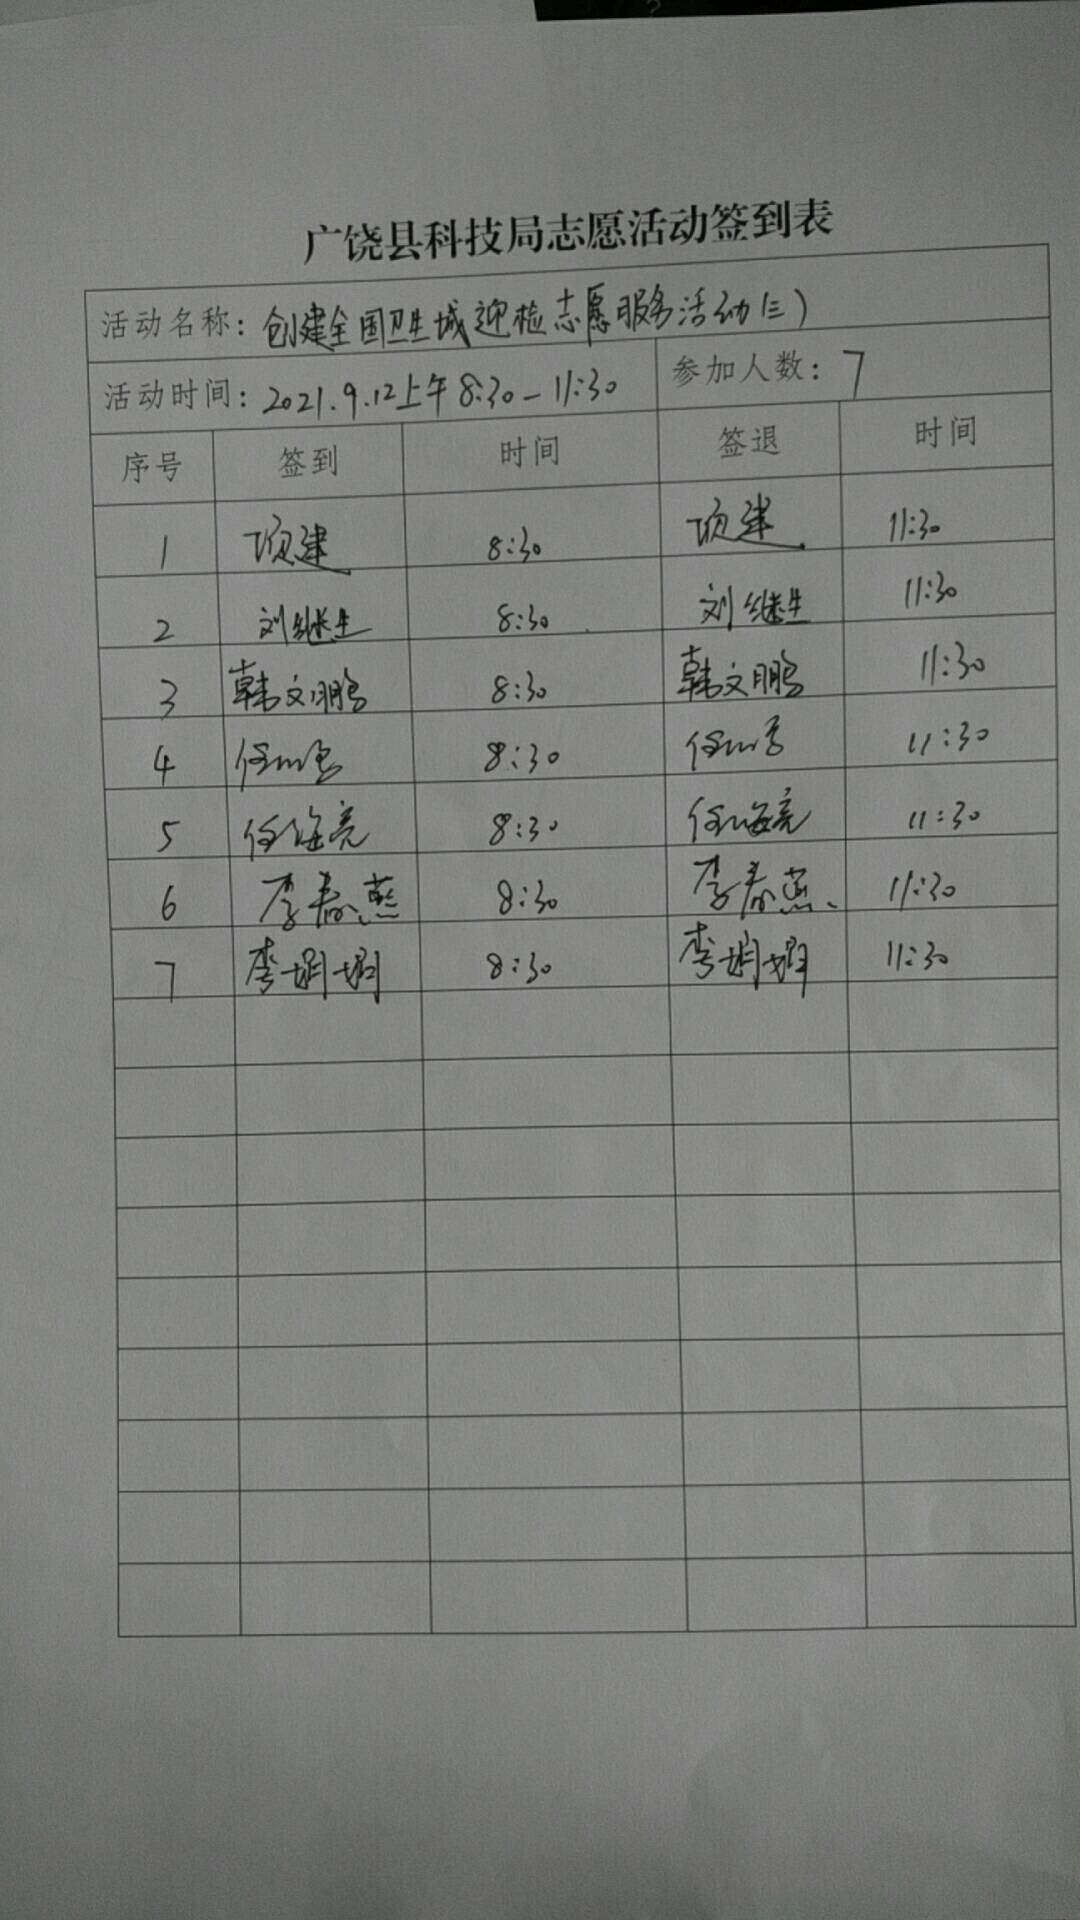 广饶县科技局志愿活动签到表
活动名称：创建全国卫生城迎检志愿服务活动(三)
活动时间：2021.9.12上午8:30-11:30 参加人数：7
序号 签到 时间 签退 时间
1 项建 8:30 项建 11:30
2 刘继生 8:30 刘继生 11:30
3 韩文鹏 8:30 韩文鹏 11:30
4 8:30 11:30
5 任海亮 8:30 任海亮 11:30
6 李春燕 8:30 李春燕 11:30
7 李娟娟 8:30 李娟娟 11:30